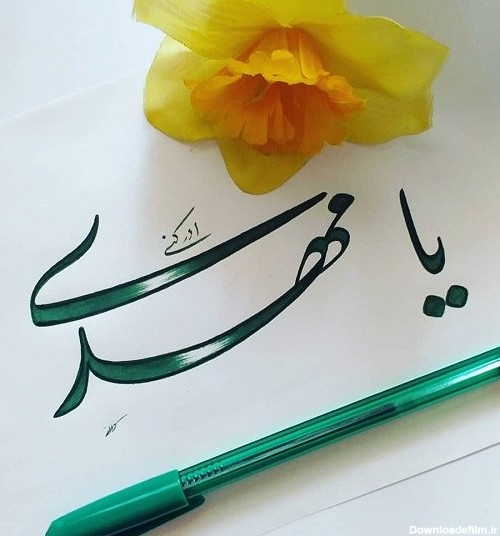 یا مهدی
ادرکنی
Downloadefilm.ir